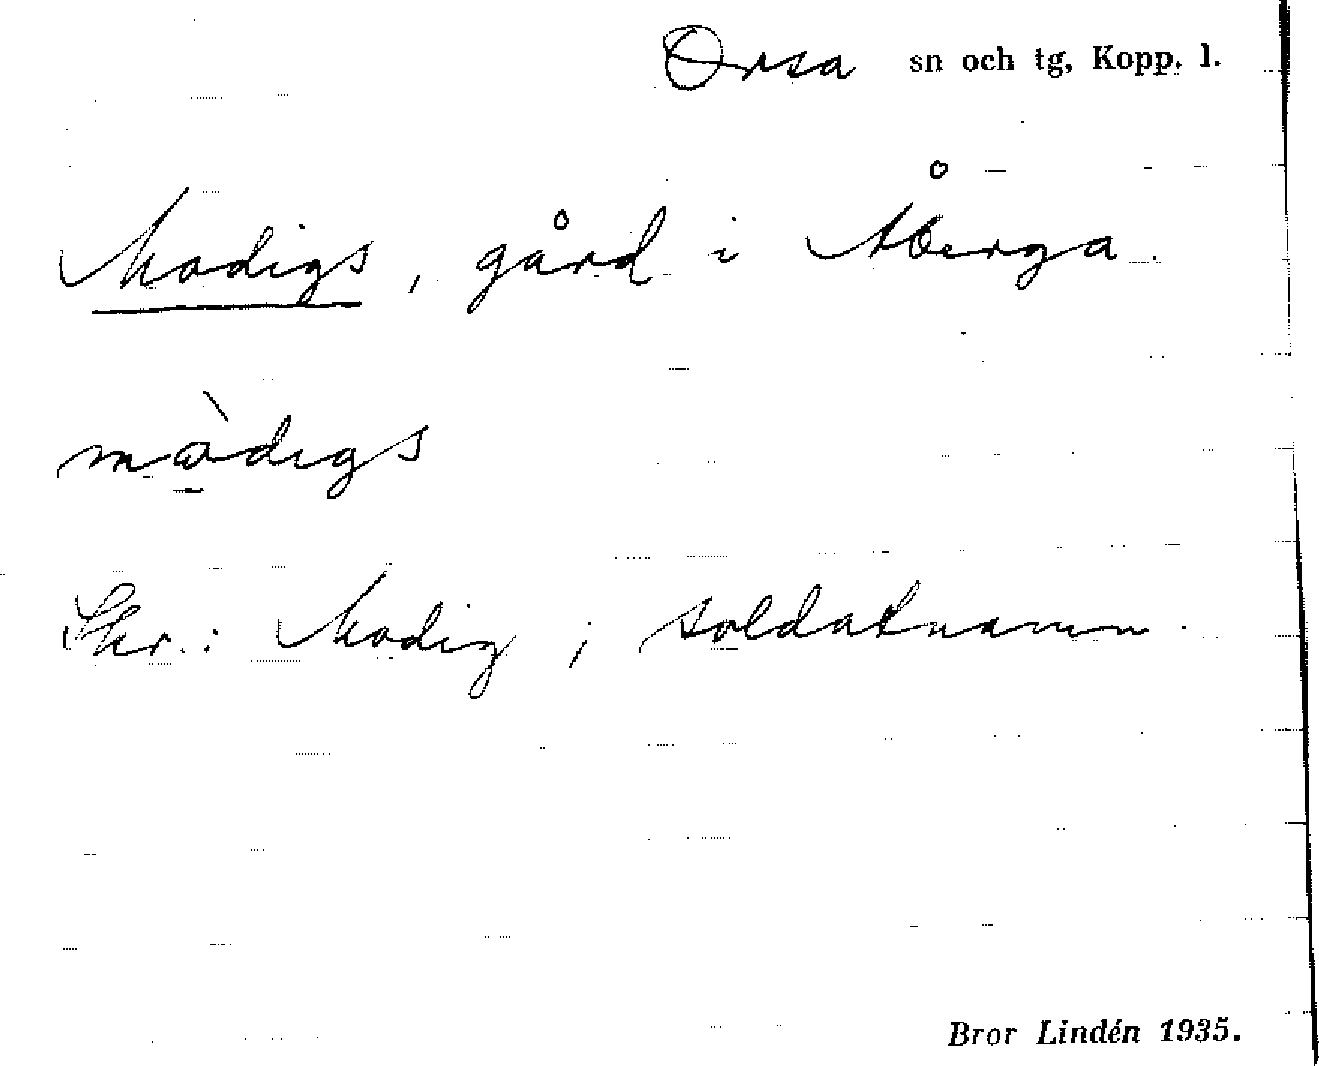 Orsa sn och tg, Kopp. l.
Modigs, gård i Åberga.
mòdıgs
Skr.: Modig ; soldatnamn.
Bror Lindén 1935.